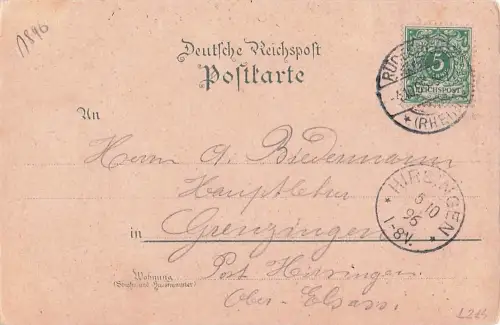 1896
Deutsche Reichspost
Postkarte
5
REICHSPOST
(RHEIN)
An
Herrn A. Biedermann
Hauptlehrer
in Grenzingen
HIRSINGEN
6 10
96
1-8V.
Wohnung
(Straße und Hausnummer)
Post Hirsingen
Ober-Elsass.